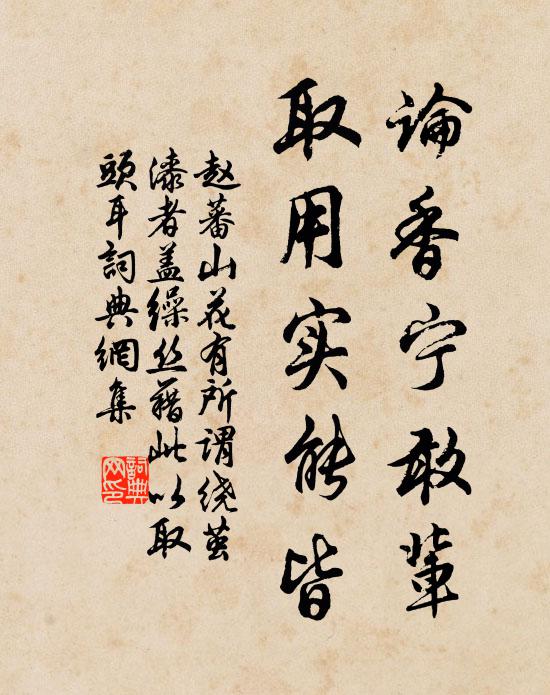 論香宁敢輩
取用实能皆
赵蕃山花有所谓绕茧
漆者盖缲丝藉此以取
頭耳詞典網集
詞典
网印